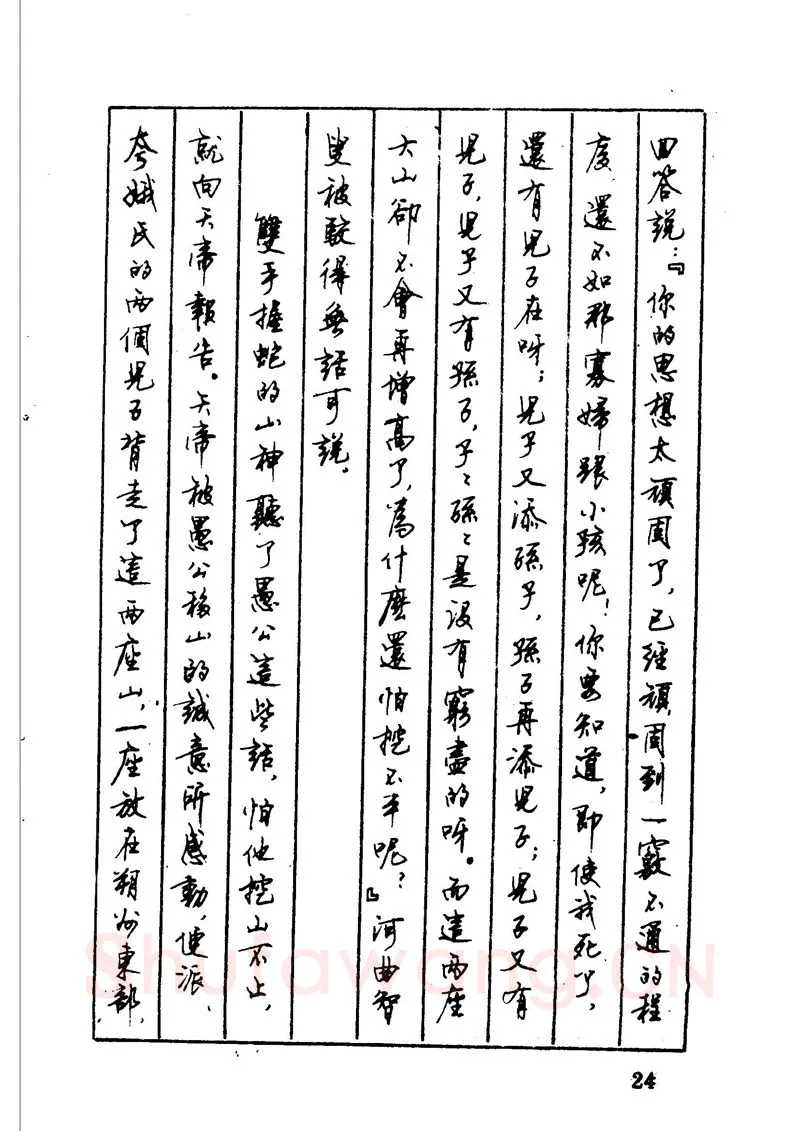 回答説：『你的思想太頑固了，已經頑固到一竅不通的程
度，還不如那寡婦跟小孩呢！你要知道，即使我死了，
還有兒子在呀；兒子又添孫子，孫子再添兒子；兒子又有
兒子，兒子又有孫子，子〻孫〻是没有窮盡的呀。而這兩座
大山卻不會再增高了，為什麽還怕挖不平呢？』河曲智
叟被駁得無話可説。
雙手握蛇的山神聽了愚公這些話，怕他挖山不止，
就向天帝報告。天帝被愚公移山的誠意所感動，便派
夸娥氏的兩個兒子背走了這兩座山，一座放在朔州東部，
Shufawang.CN
24